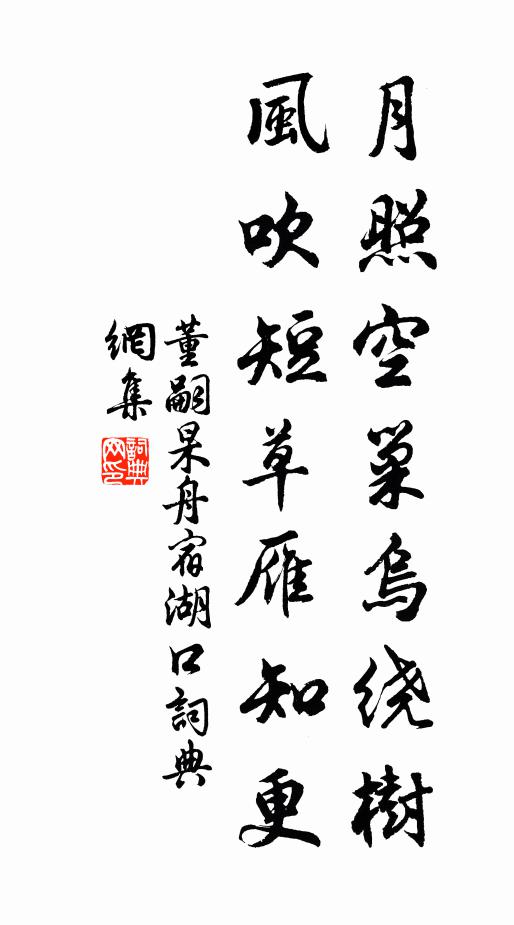 月照空巢烏绕樹
風吹短草雁知更
董嗣杲舟宿湖口詞典
網集
詞典網印